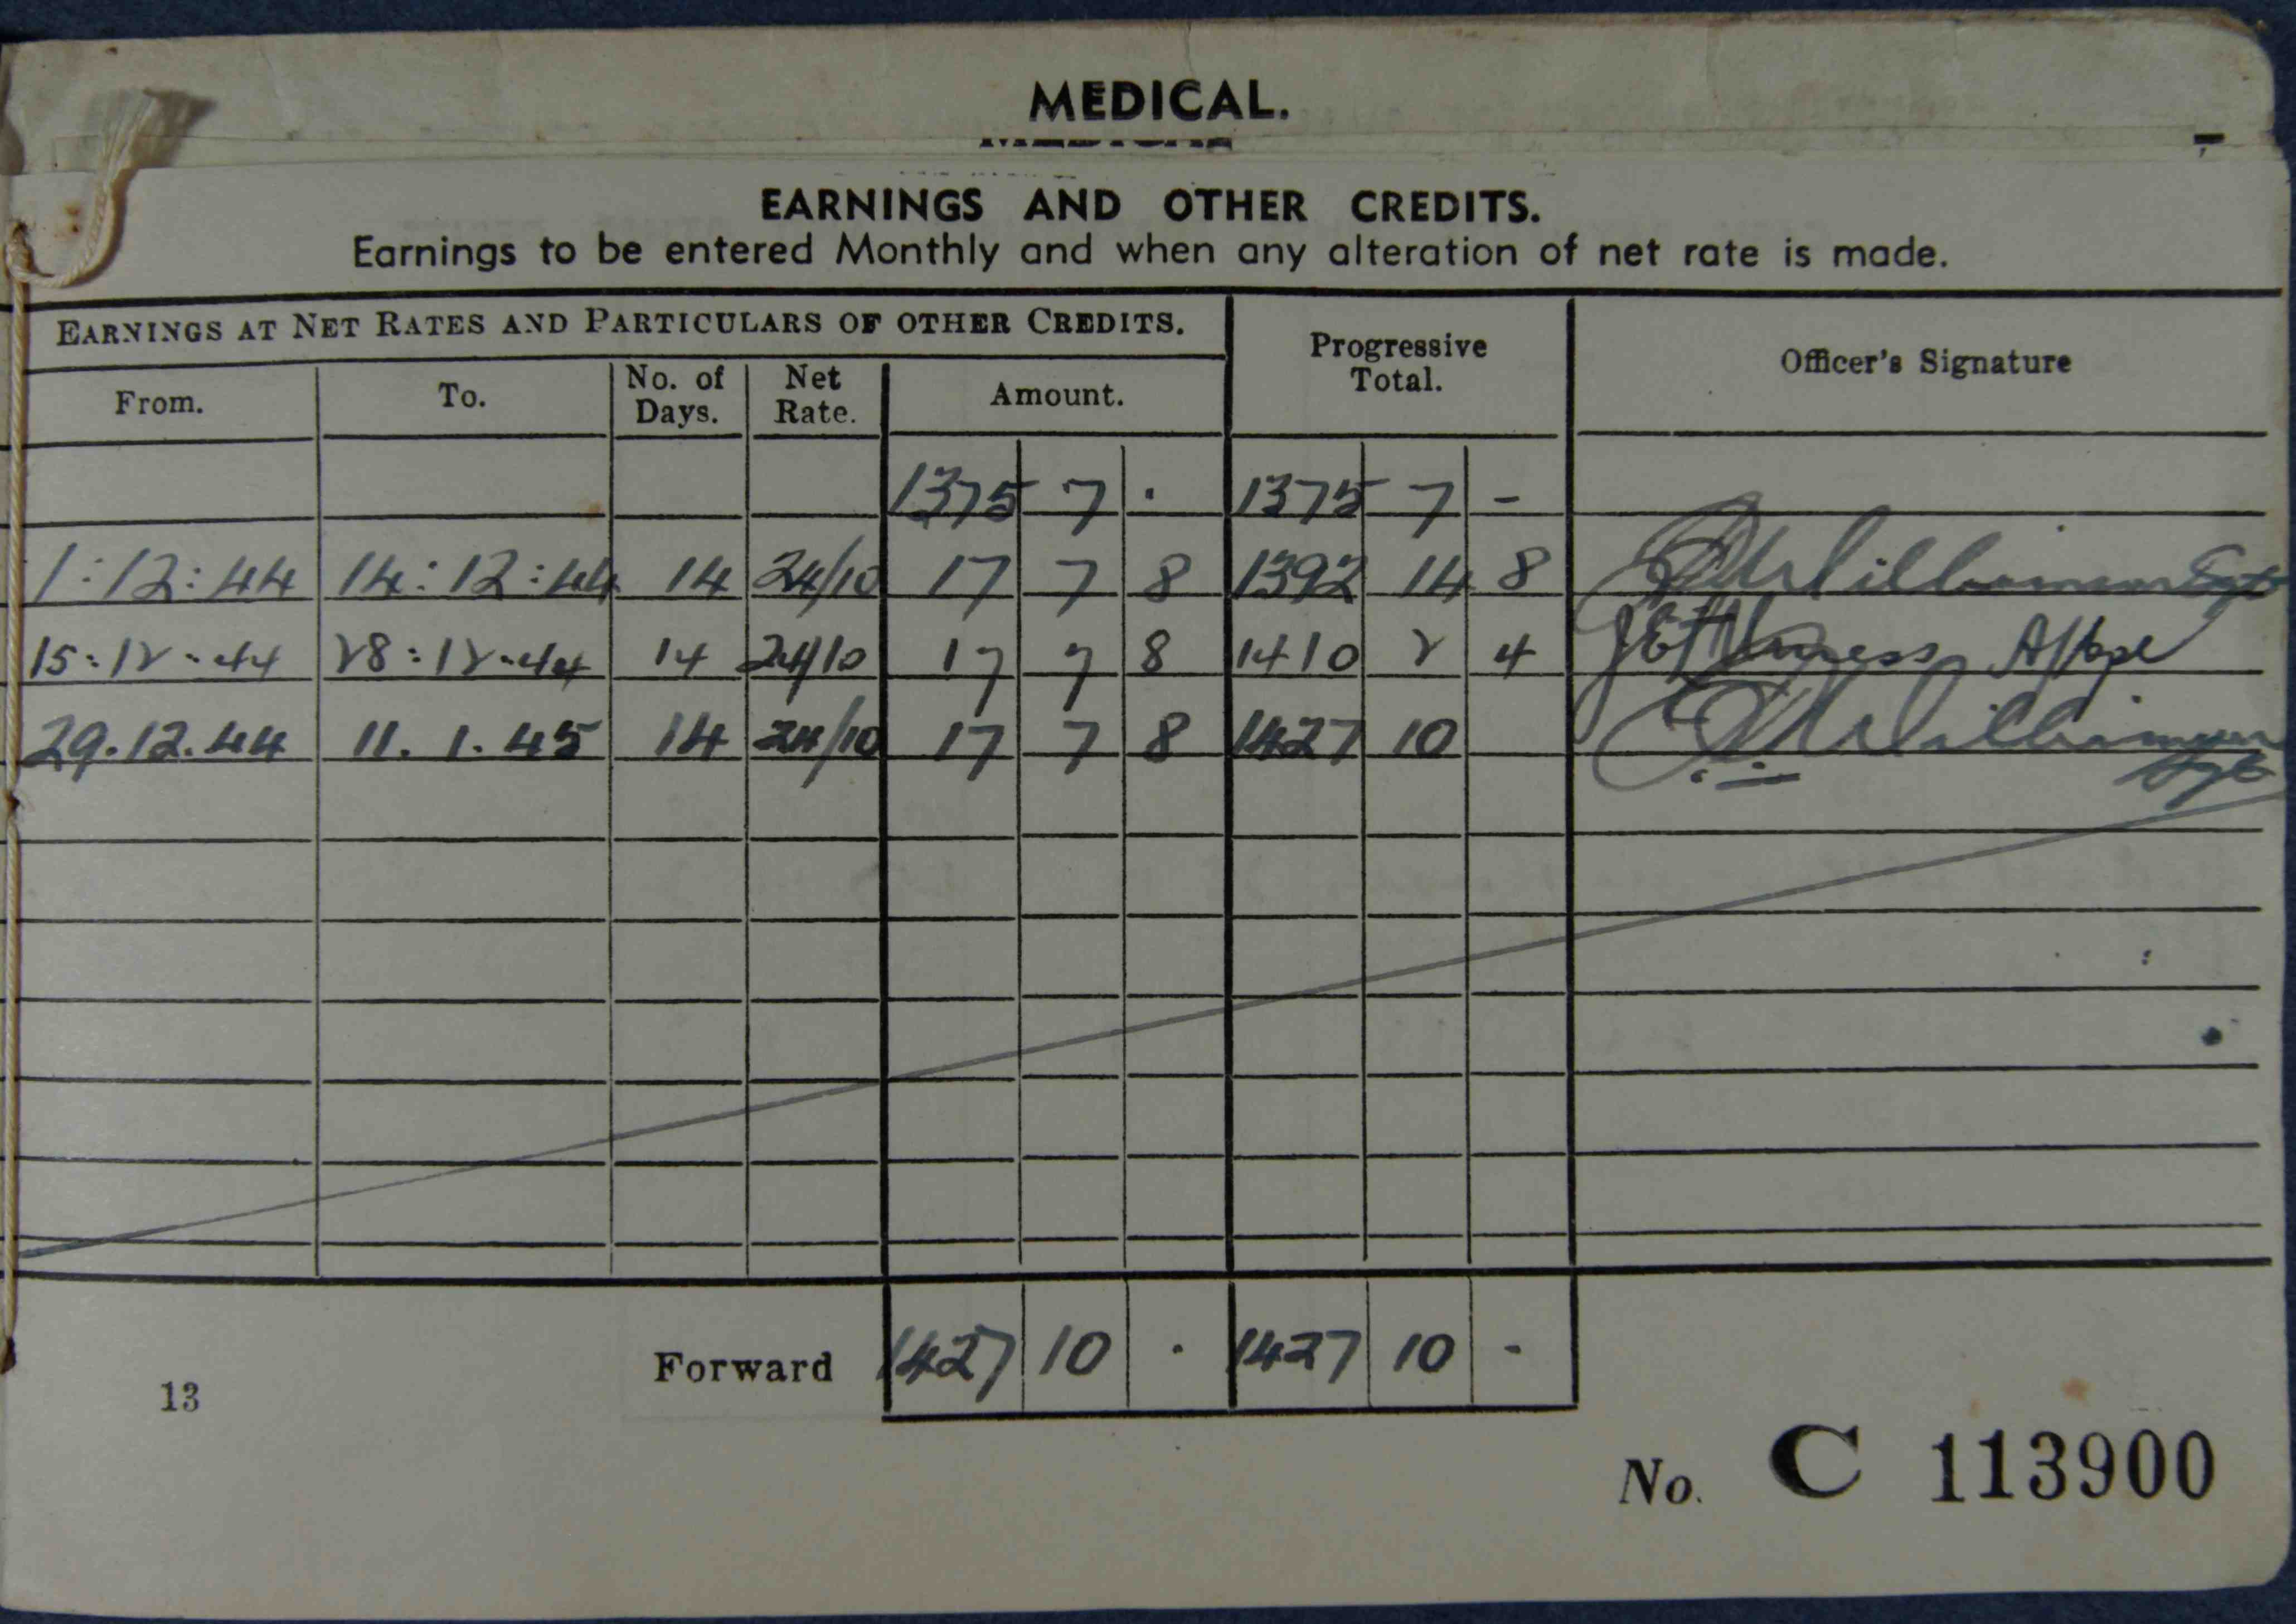 MEDICAL.
EARNINGS AND OTHER CREDITS.
Earnings to be entered Monthly and when any alteration of net rate is made.
EARNINGS AT NET RATES AND PARTICULARS OF OTHER CREDITS.
Progressive Total.
Officer's Signature
From. To. No. of Days. Net Rate. Amount.
1375 7 · 1375 7 -
1:12:44 14:12:44 14 24/10 17 7 8 1392 14 8 Sgt
15:12:44 28:12:44 14 24/10 17 7 8 1410 2 4
29.12.44 11.1.45 14 24/10 17 7 8 1427 10
Sgt
Forward 1427 10 · 1427 10 -
13
No. C 113900